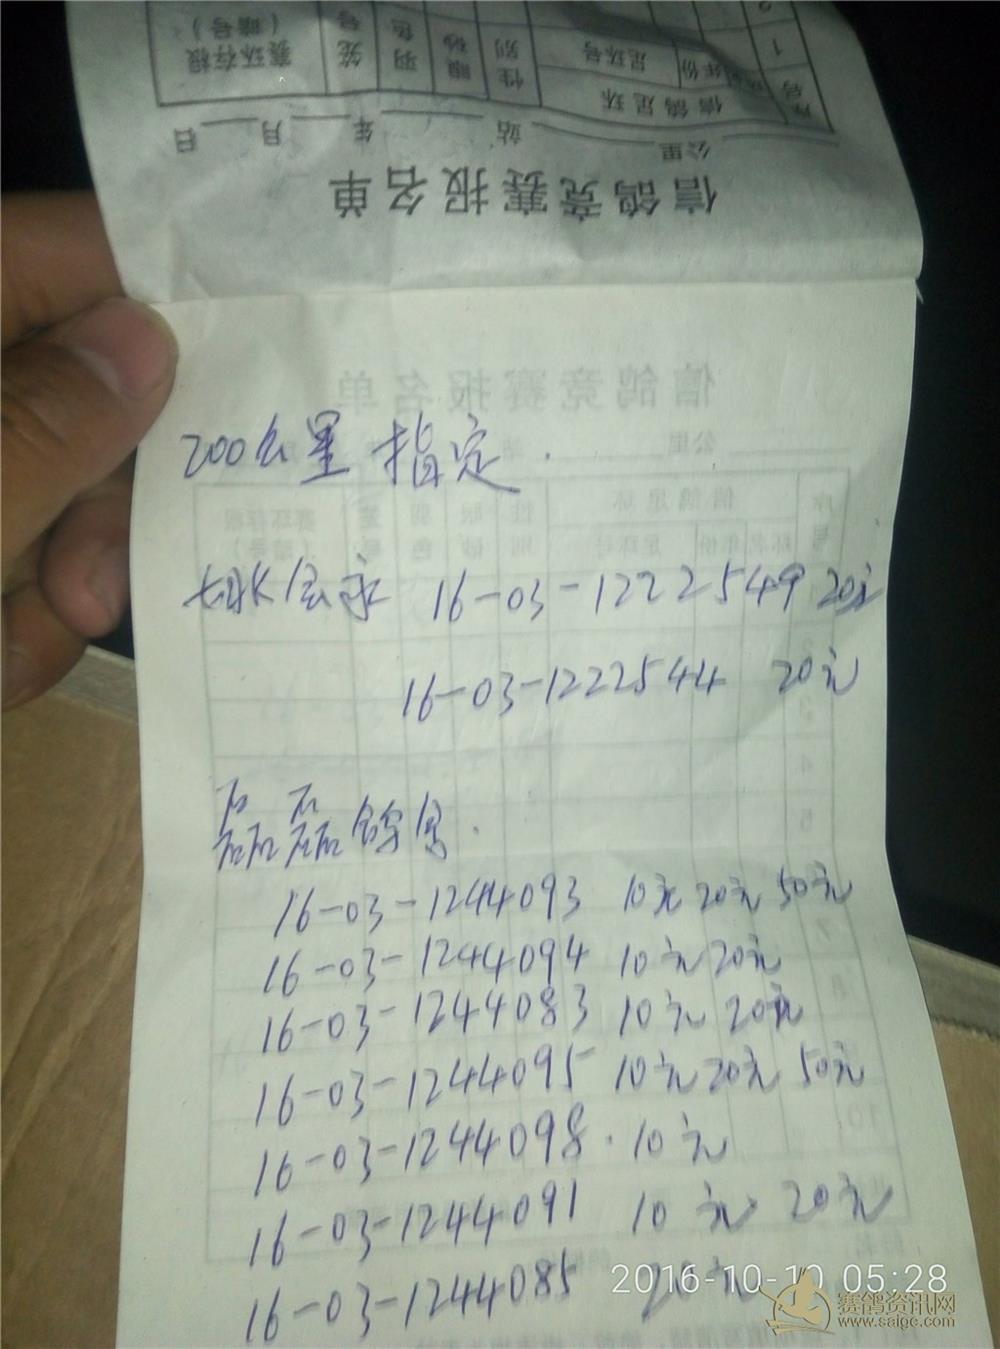 序号
信鸽足环
年份
足环号
性别
眼砂
羽色
笼号
赛环存根（暗号）
1
2
公里
站
年
月
日
信鸽竞赛报名单
200公里 指定.
16-03-1222549 20元
16-03-1222544 20元
磊磊鸽舍.
16-03-1244093 10元 20元 50元
16-03-1244094 10元 20元
16-03-1244083 10元 20元
16-03-1244095 10元 20元 50元
16-03-1244098. 10元
16-03-1244091 10元 20元
16-03-1244085 20元
2016-10-10 05:28
赛鸽资讯网
www.saige.com